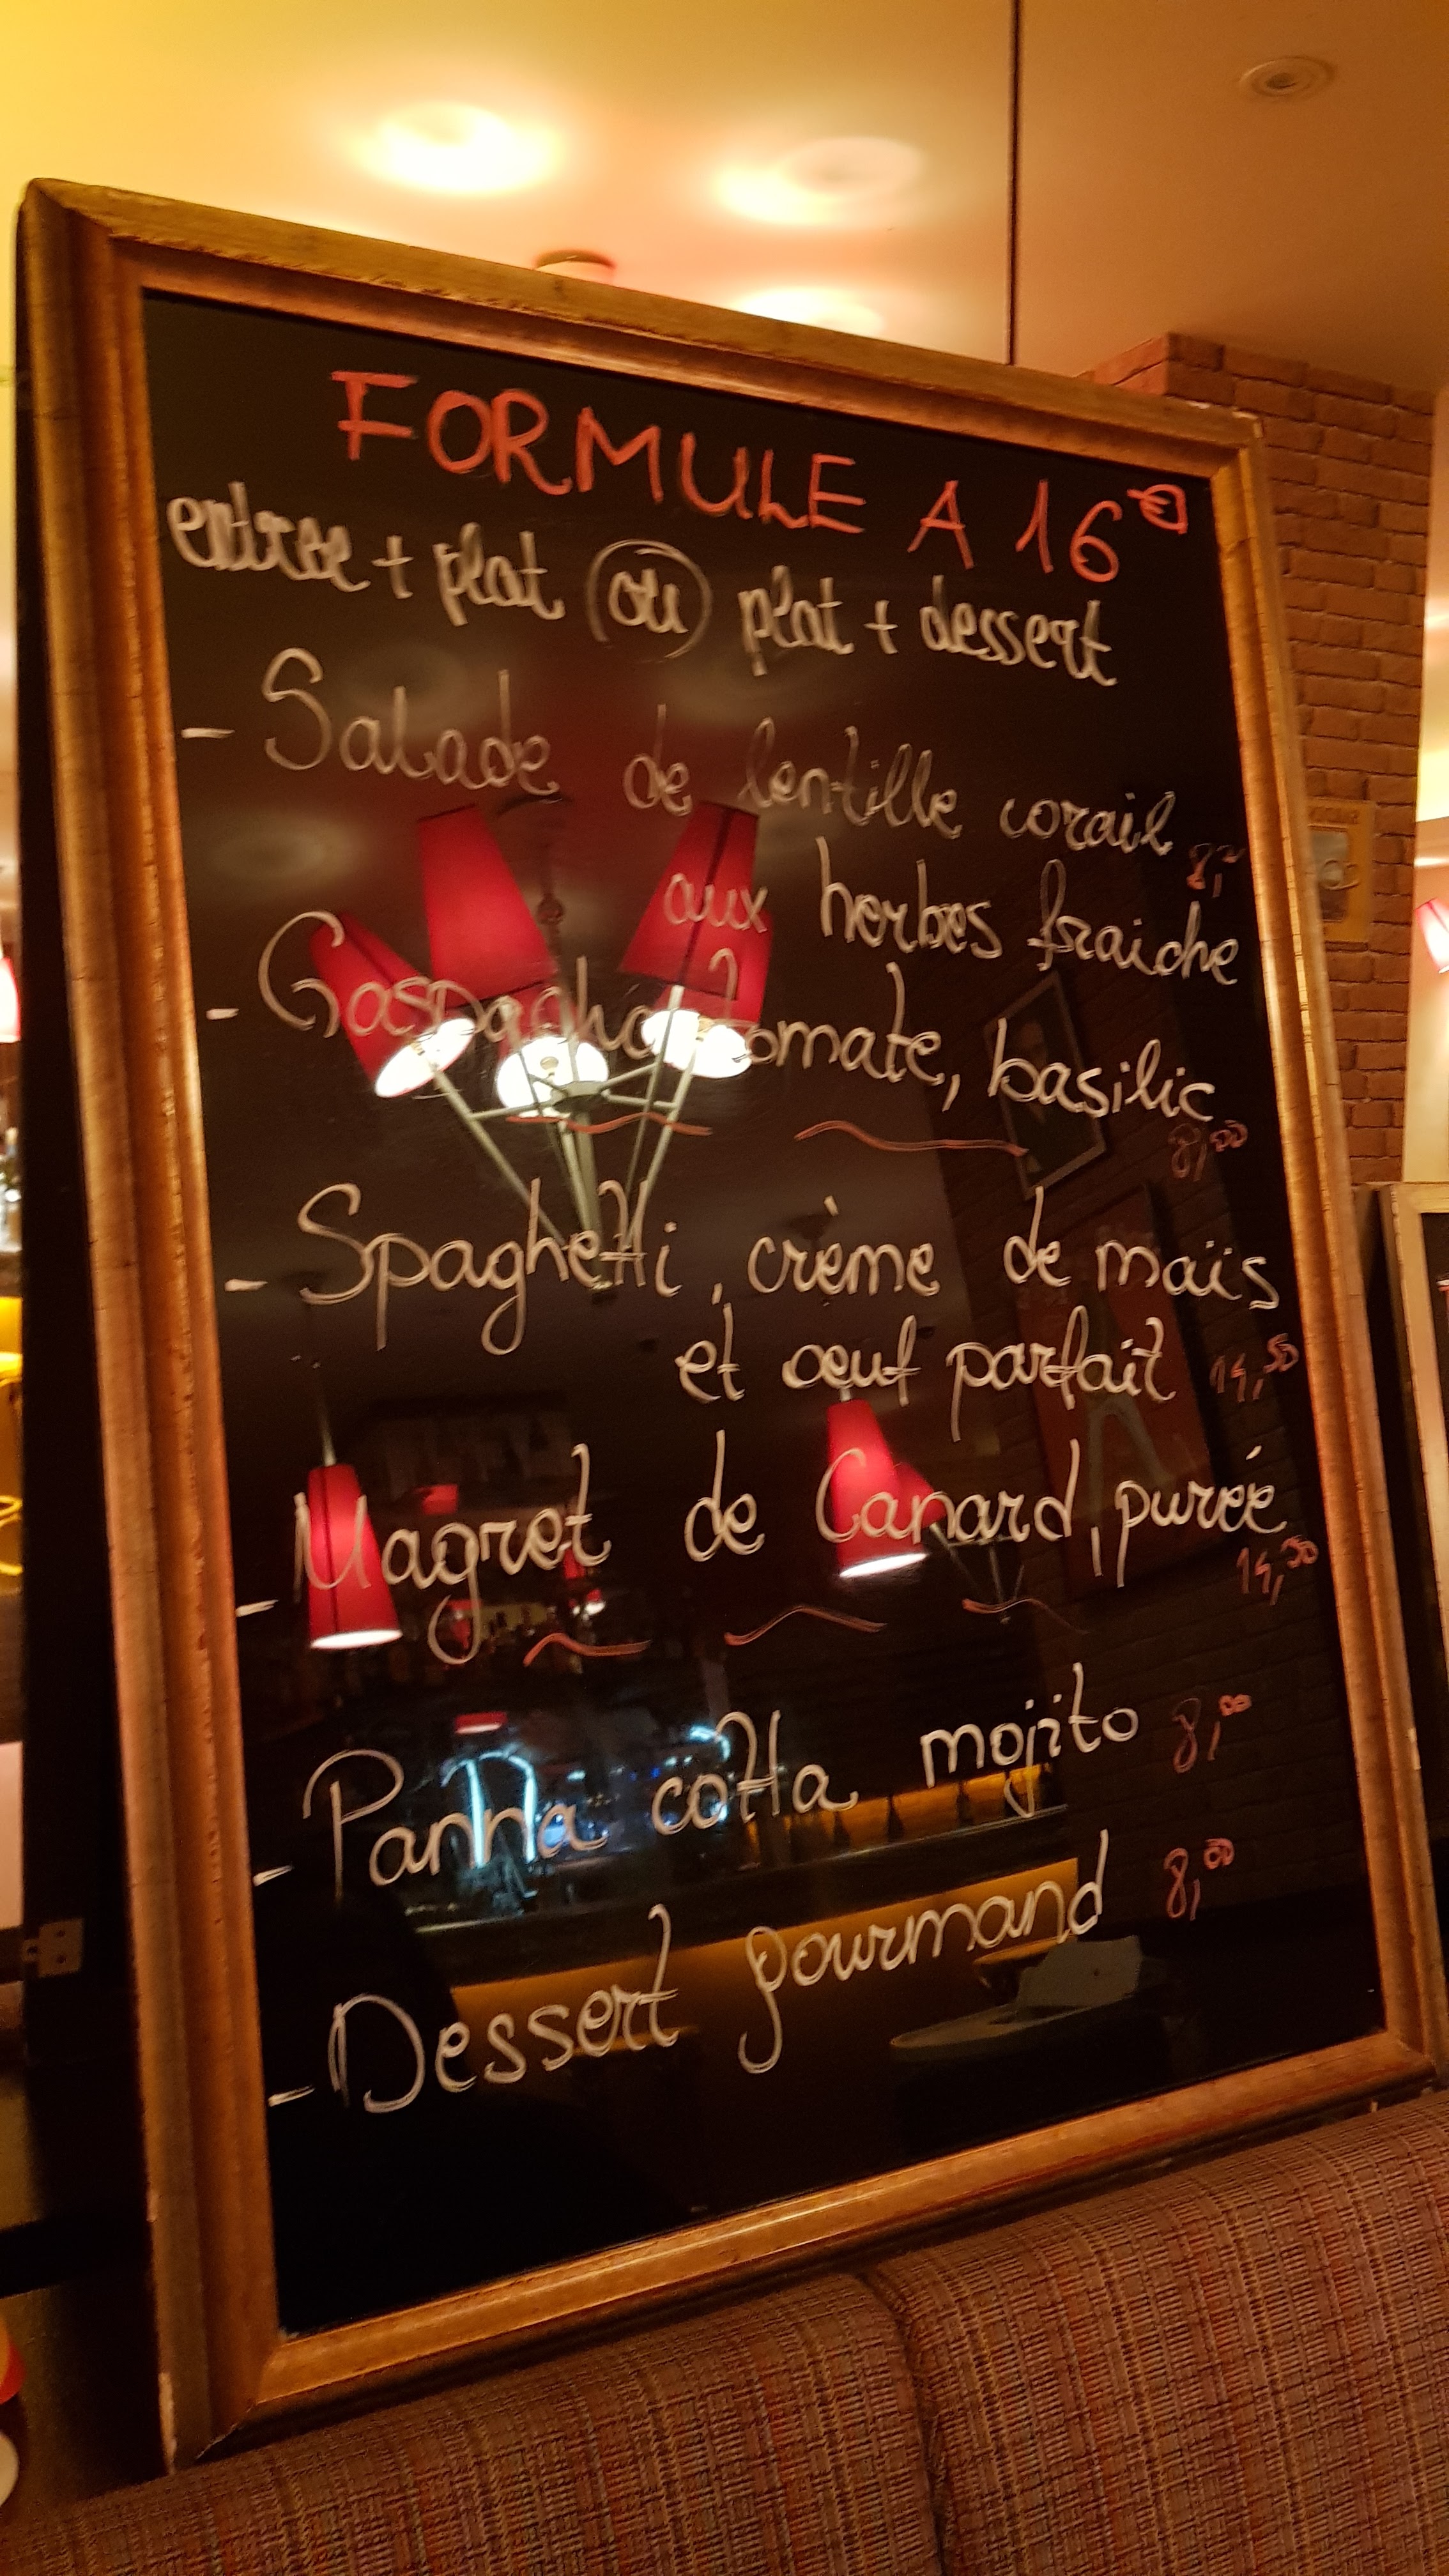 FORMULE A 16€
entree + plat ou plat + dessert
- Salade de lentille corail
aux herbes fraiche
- Gaspacho tomate, basilic
8,00
- Spaghetti, crème de maïs
et oeuf parfait 14,50
- Magret de Canard, purée
14,50
- Panna cotta mojito 8,00
- Dessert gourmand 8,00